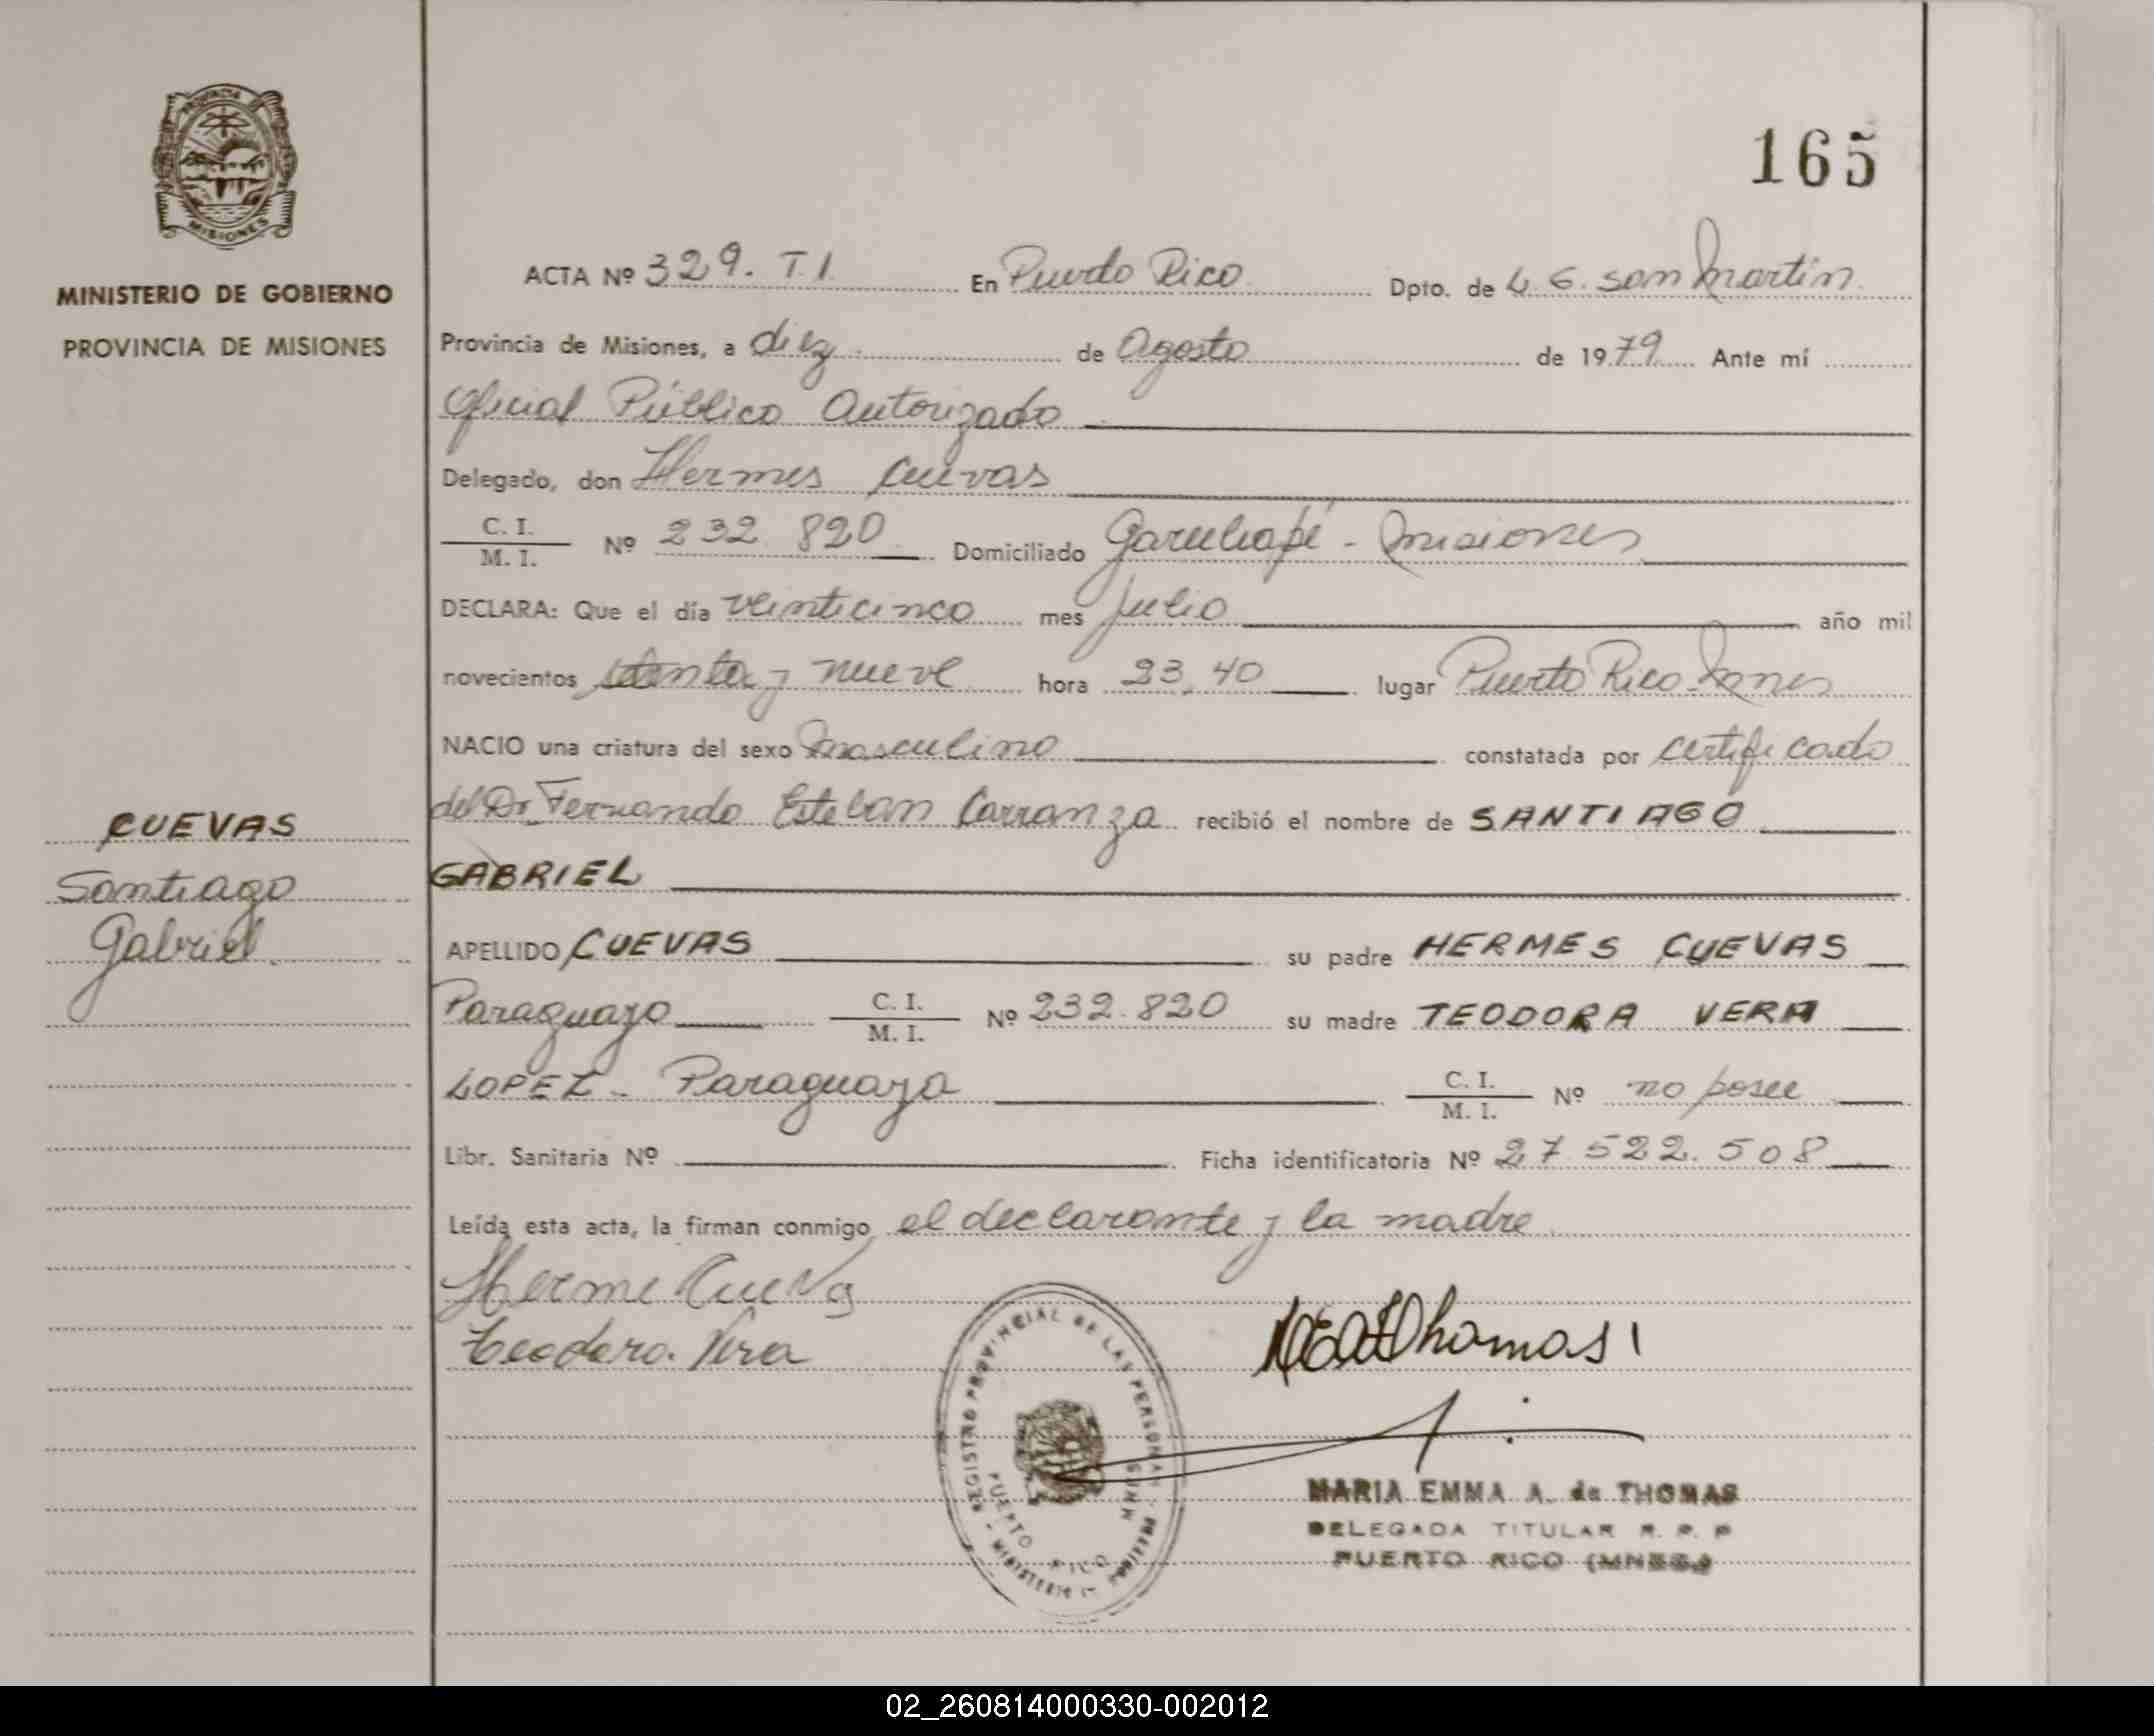 PROVINCIA
MISIONES
MINISTERIO DE GOBIERNO
PROVINCIA DE MISIONES
CUEVAS
Santiago
Gabriel.
165
ACTA Nº 329. T.I. En Puerto Rico Dpto. de L. G. San Martín
Provincia de Misiones, a diez de Agosto de 1979 Ante mí
Oficial Público Autorizado
Delegado, don Hermes Cuevas
C. I.
M. I. Nº 232.820 Domiciliado Garuhapé - Misiones
DECLARA: Que el día veinticinco mes Julio año mil
novecientos setenta y nueve hora 23,40 lugar Puerto Rico Mnes
NACIO una criatura del sexo masculino constatada por certificado
del Dr. Fernando Esteban Carranza recibió el nombre de SANTIAGO
GABRIEL
APELLIDO CUEVAS su padre HERMES CUEVAS
Paraguayo C. I. M. I. Nº 232.820 su madre TEODORA VERA
LOPEZ - Paraguaya C. I. M. I. Nº no posee
Libr. Sanitaria Nº Ficha identificatoria Nº 27.522.508
Leída esta acta, la firman conmigo el declarante y la madre.
Herme Cueva
Teodora Vera
REGISTRO PROVINCIAL DE LAS PERSONAS
PUERTO RICO
MEAThomas
MARIA EMMA A. de THOMAS
DELEGADA TITULAR R. P. P
PUERTO RICO (MNES.)
02_260814000330-002012